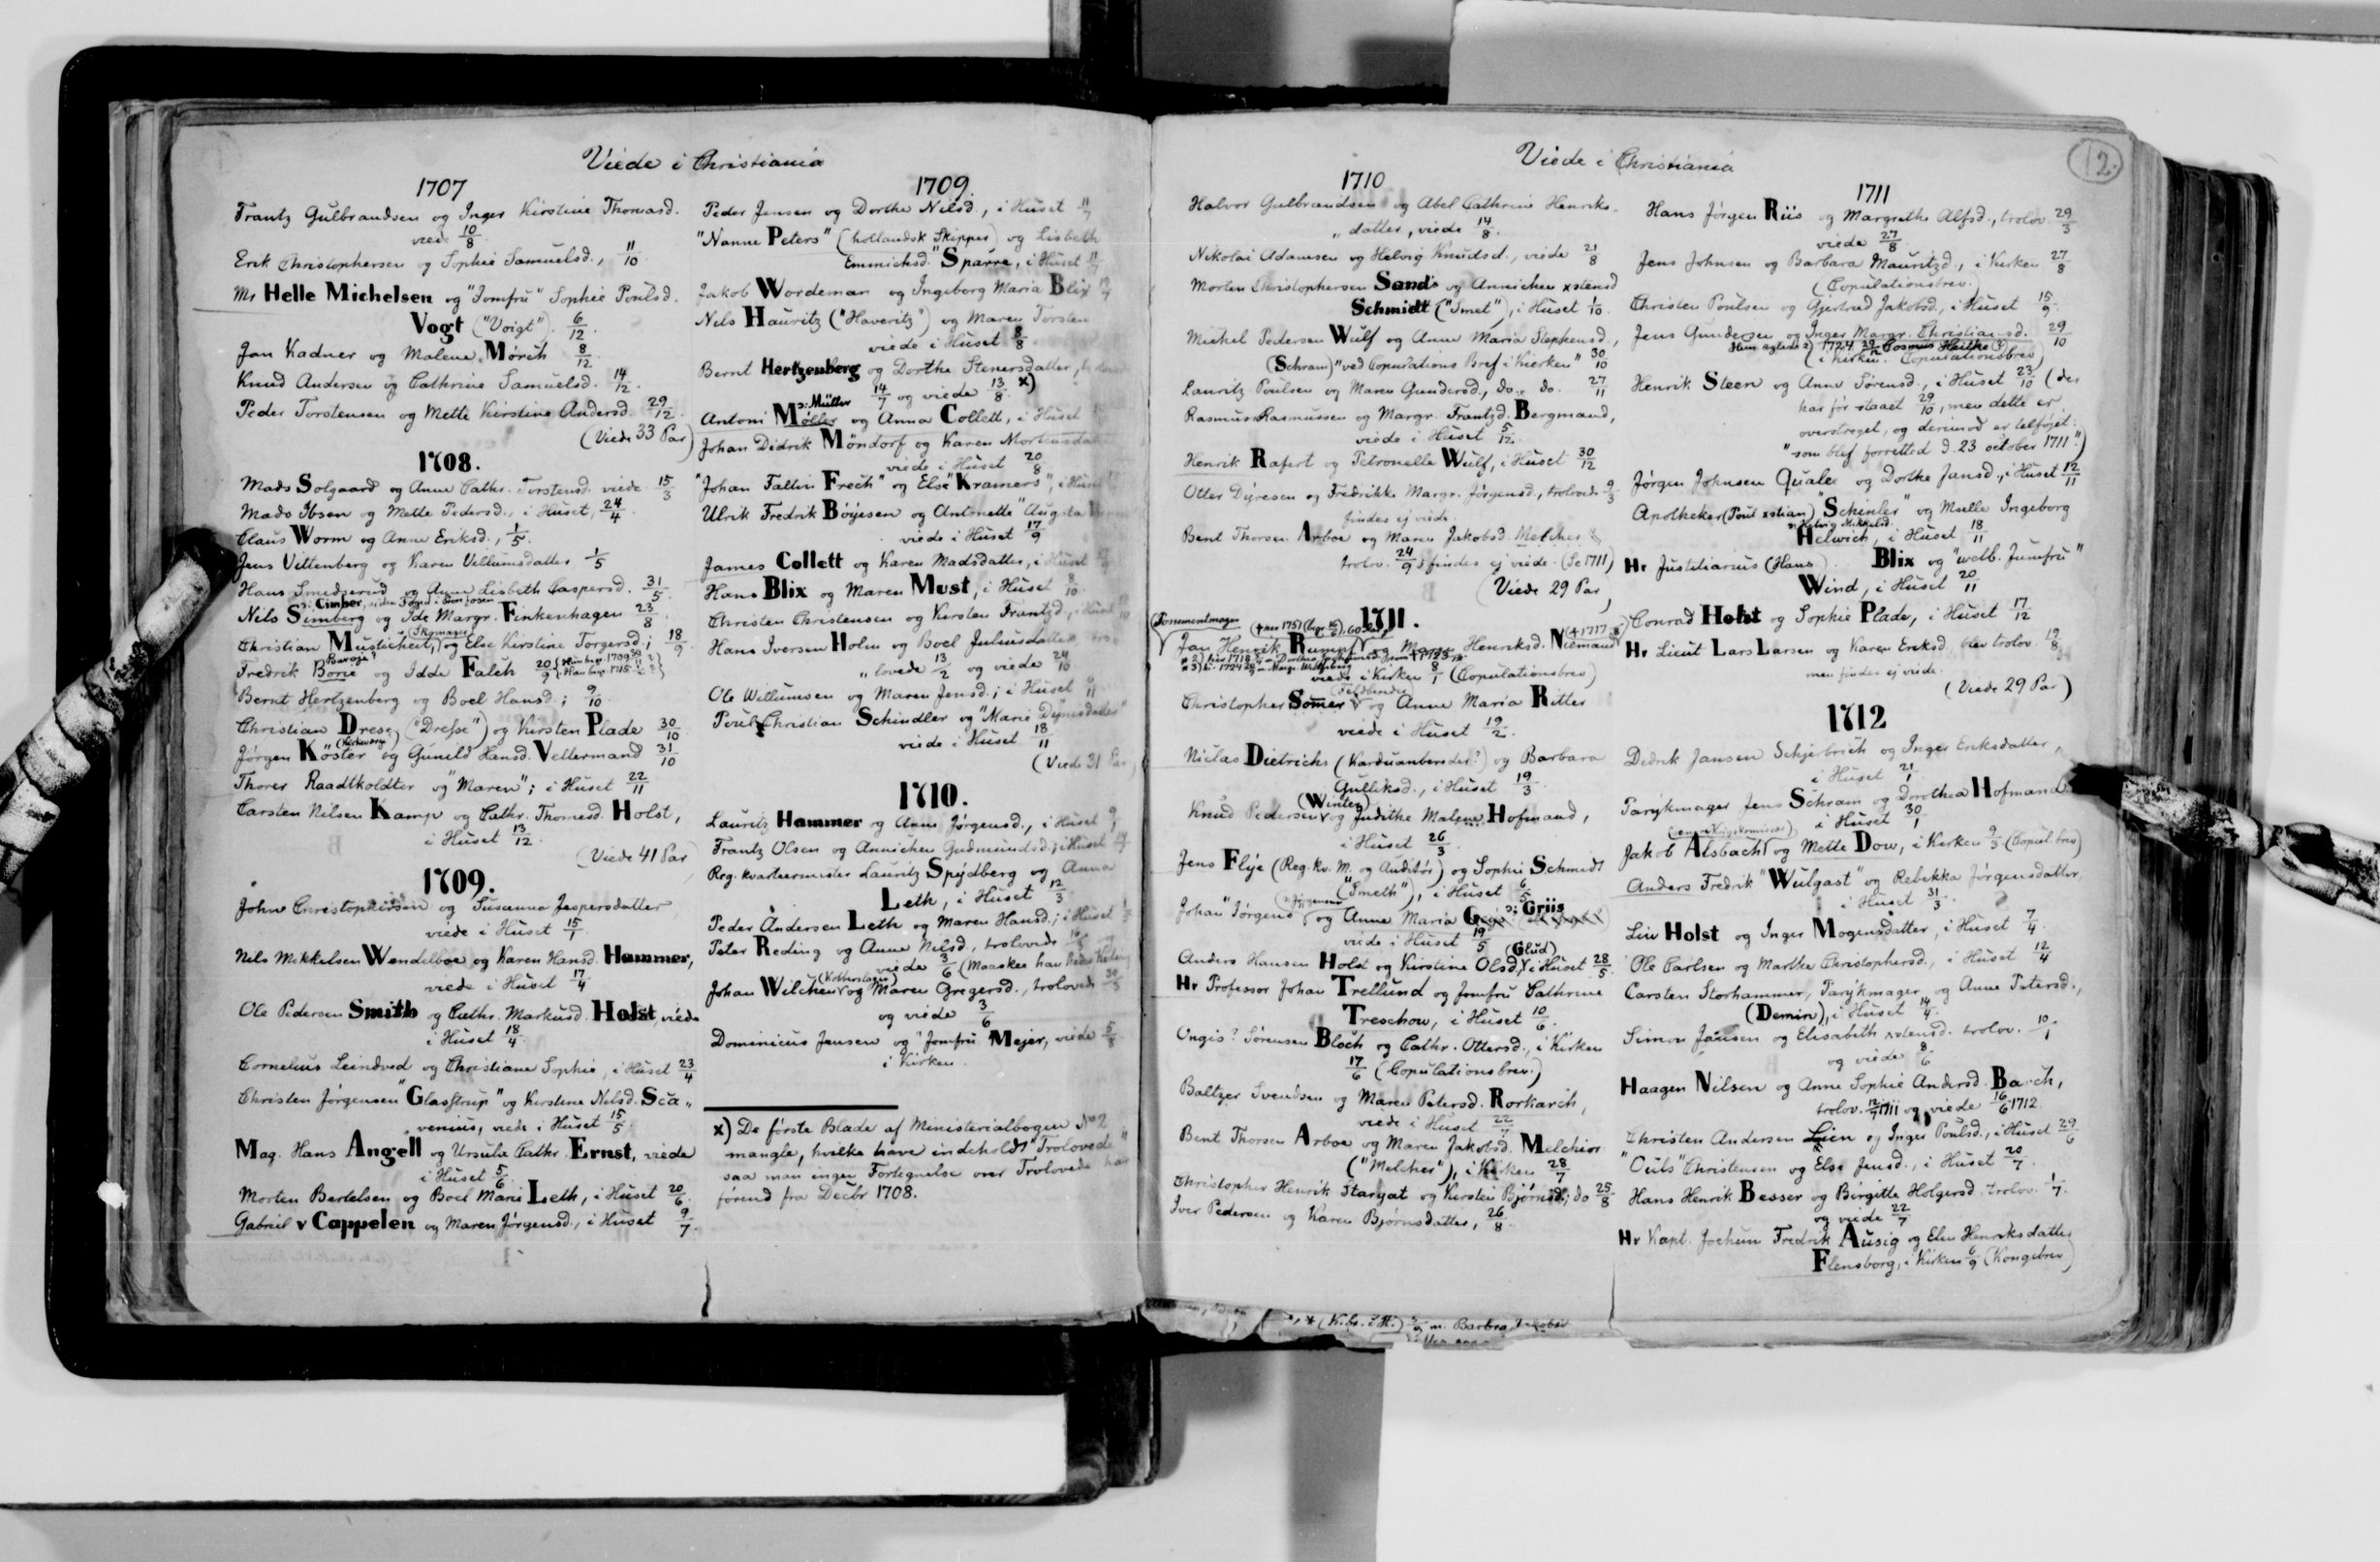 Viede i Christiania
1707
Frantz Gulbrandsen og Inger Kirstine Thomasd.
viede 10/8.
Erik Christophersen og Sophie Samuelsd., 11/10.
Mr Helle Michelsen og "Jomfru" Sophie Poulsd.
Vogt ("Voigt"). 6/12.
Jan Kadner og Malene Mørch 8/12.
Knud Andersen og Cathrine Samuelsd. 14/12.
Peder Torstensen og Mette Kirstine Andersd. 29/12.
(Viede 33 Par)
1708.
Mads Solgaard og Anne Cathr. Torstensd. viede 15/3
Mads Ibsen og Mette Pedersd., i Huset, 24/4.
Claus Worm og Anne Eriksd., 1/5.
Jens Vittenberg og Karen Villumsdatter 1/5
Hans Smedserud og Anne Lisbeth Caspersd. 31/5.
ɔ: Cimber,
Nils Simberg og Ide Margr. Finkenhagen 23/8
Christian Musticheit, og Else Kirstine Torgersd; 18/9.
Fredrik Borie og Idde Falch 20/9
Bernt Hertzenberg og Boel Hansd; 9/10.
Christian Drese, ("Dresse") og Kirsten Plade 30/10.
Jørgen Köster og Gunild Hansd. Vellermand 31/10
Thorer Raadtkoldter og "Maren"; i Huset 22/11
Carsten Nilsen Kamp og Cathr. Thomesd. Holst,
i Huset 13/12.
(Viede 41 Par)
1709.
John Christophersen og Susanna Jespersdatter
viede i Huset 15/1.
Nils Mikkelsen Wendelboe og Karen Hansd. Hammer,
viede i Huset 17/4
Ole Pedersen Smith og Cathr. Markusd. Holst, viede
i Huset 18/4.
Cornelius Leindved og Christiane Sophie, i Huset 23/4
Christen Jørgensen "Glasstrup" og Kirstine Nilsd. Sca„
„venius, viede i Huset 15/5.
Mag. Hans Angell og Ursula Cathr. Ernst, viede
i Huset 5/6.
Morten Bertelsen og Boel Marie Leth, i Huset 20/6.
Gabriel v Cappelen og Maren Jørgensd., i Huset 9/7.
1709.
Peder Jensen og Dorthe Nilsd., i Huset
"Nanne Peters" (hollandsk Skipper) og Lisbeth
Emmichsd. "Sparre, i Huset
Jakob Wordeman og Ingeborg Maria Blix
Nils Hauritz ("Haveritz") og Maren Torsten
viede i Huset 8/8.
Bernt Hertzenberg og Dorthe Stenersdatter,
14/7 og viede 13/8. x)
ɔ: Müller
Antoni Møller og Anna Collett, i Huset
Johan Didrik Möndorf og Karen
viede i Huset 20/8
"Johan Faltin Frech" og Else "Kramers",
Ulrik Fredrik Böyesen og Antonette "Augusta
viede i Huset 17/9
James Collett og Karen Madsdatter, i Huset
Hans Blix og Maren Must, i Huset 8/10.
Christen Christensen og Kirsten Frantzd., i Huset
Hans Iversen Holm og Boel Juliusdatter
„lovede 13/2 og viede 24/10
Ole Willumsen og Maren Jensd.; i Huset
Poul Christian Schindler og "Marie
viede i Huset 18/11
(Viede 31 Par)
1710.
Lauritz Hammer og Anne Jørgensd., i Huset
Frantz Olsen og Annichen Gudmundsd.; i Huset
Reg. kvarteermester Lauritz Spydberg og Anna
Leth, i Huset 12/3.
Peder Andersen Leth og Maren Hansd.; i Huset
Peter Reding og Anne Nilsd., trolovede
viede 3/6 (Maaskee
Johan Wilchen og Maren Gregersd., trolovede
og viede 3/6
Dominicus Jensen og "Jomfru Mejer, viede
i Kirken.
x) De første Blade af Ministerialbogen No 2
mangle, hvilke have indeholdt "Trolovede"
saa man ingen Fortegnelse over Trolovede har
førend fra Decbr 1708.
Viede i Christiania
12.
1710
Halvor Gulbrandsen og Abel Cathrine Henriks„
„datter, viede 14/8.
Nikolai Adamsen og Helvig Knudsd., viede 21/8
Morten Christophersen Sand og Annichen xstensd
Schmidt ("Smet"), i Huset 1/10.
Michel Pedersen Wulf og Anne Maria Stephensd.,
(Schram) "ved Copulations Bref i Kierken" 30/10
Lauritz Poulsen og Maren Gundersd., do. do. 27/11
Rasmus Rasmussen og Margr. Frantzd. Bergmand,
viede i Huset 5/12.
Henrik Rafert og Petronelle Wulf, i Huset 30/12
Otter Dyresen og Fredrikke Margr. Jørgensd., trolovede 9/3
findes ej viede.
Bent Thorsen Arboe og Maren Jakobsd. Melcher
trolov. 24/9; findes ej viede. (Se 1711)
(Viede 29 Par)
1711.
Jan Henrik Rumpf og Maren Henriksd. Niemand
viede i Kirken 8/1 (Copulationsbrev)
Christopher Sømer og Anne Maria Ritter
viede i Huset 19/2.
Niclas Dietrichs (Karduanbereder?) og Barbara
Gulliksd., i Huset 19/3.
(Winter)
Knud Pedersen og Judithe Malene Hofmand,
i Huset 26/3.
Jens Flye (Reg. Kv. M. og Auditør) og Sophie Schmidt
("Smeth"), i Huset 6/5
Johan "Jörgens og Anne Maria ɔ: Griis
viede i Huset 19/5
(Glud)
Anders Hansen Holst og Kirstine Olsd, i Huset 28/5.
Hr Professor Johan Trellund og Jomfru Cathrine
Treschow, i Huset 10/6.
Ongis? Sørensen Bloch og Cathr. Ottersd., i Kirken
17/6 (Copulationsbrev.)
Baltzer Svendsen og Maren Petersd. Rorkarch,
viede i Huset
Bent Thorsen Arboe og Maren Jakobsd. Melchior
("Melcher"), i Kirken 28/7
Christopher Henrik Staryat og Kirsten Bjørnsd; do 25/8
Iver Pedersen og Karen Bjørnsdatter, 26/8.
1711
Hans Jørgen Riis og Margrethe Alfsd., trolov. 29/3
viede 27/8.
Jens Johnsen og Barbara Mauritzd., i Kirken 27/8
(Copulationsbrev.)
Christen Poulsen og Gjertrud Jakobsd., i Huset 15/9.
Jens Gundersen og Inger Margr. Christiansd. 29/10
i Kirken. Copulationsbrev)
Henrik Steen og Anne Sørensd., i Huset 23/10 (der
har før staaet 29/10, men dette er
overstreget, og derimod er tilføjet:
"som blef forretted d. 23 october 1711.")
Jørgen Johnsen Quale og Dorthe Jansd., i Huset 12/11
Apotheker (Poul xstian) "Schinler" og Mselle Ingeborg
Helwich, i Huset 18/11
Hr Justitiarius (Hans ) Blix og "welb. Jumfru"
Wind, i Huset 20/11
Conrad Holst og Sophie Plade, i Huset 17/12
Hr Lieut Lars Larsen og Karen Eriksd. blev trolov. 19/8.
men findes ej viede.
(Viede 29 Par)
1712
Didrik Jansen Schjerbrich og Inger Eriksdatter,
i Huset 21/1
Parykmager Jens Schram og Dorothea Hofmand
i Huset 30/1
Jakob Alsbach og Mette Dow, i Kirken 9/3 (Copul. brev)
Anders Fredrik "Wulgast" og Rebekka Jørgensdatter,
i Huset 31/3.
Liv Holst og Inger Mogensdatter, i Huset 7/4.
Ole Carlsen og Marthe Christophersd., i Huset 12/4
Carsten Storhammer, Parykmager og Anne Petersd.,
(Demin), i Huset 14/4.
Simon Jansen og Elisabeth xstensd. trolov. 10/1
og viede 8/6
Haagen Nilsen og Anne Sophie Andersd. Barch,
trolov. 1711 og viede 16/6 1712.
Christen Andersen Lien og Inger Poulsd., i Huset 29/6
"Ouls" Christensen og Else Jensd., i Huset 20/7.
Hans Henrik Besser og Birgitte Holgersd. trolov. 1/7.
og viede 22/7
Hr Kapt. Jochum Fredrik Ausig og Elen Henriksdatter
Flensborg, i Kirken 6/9 (Kongebrev)